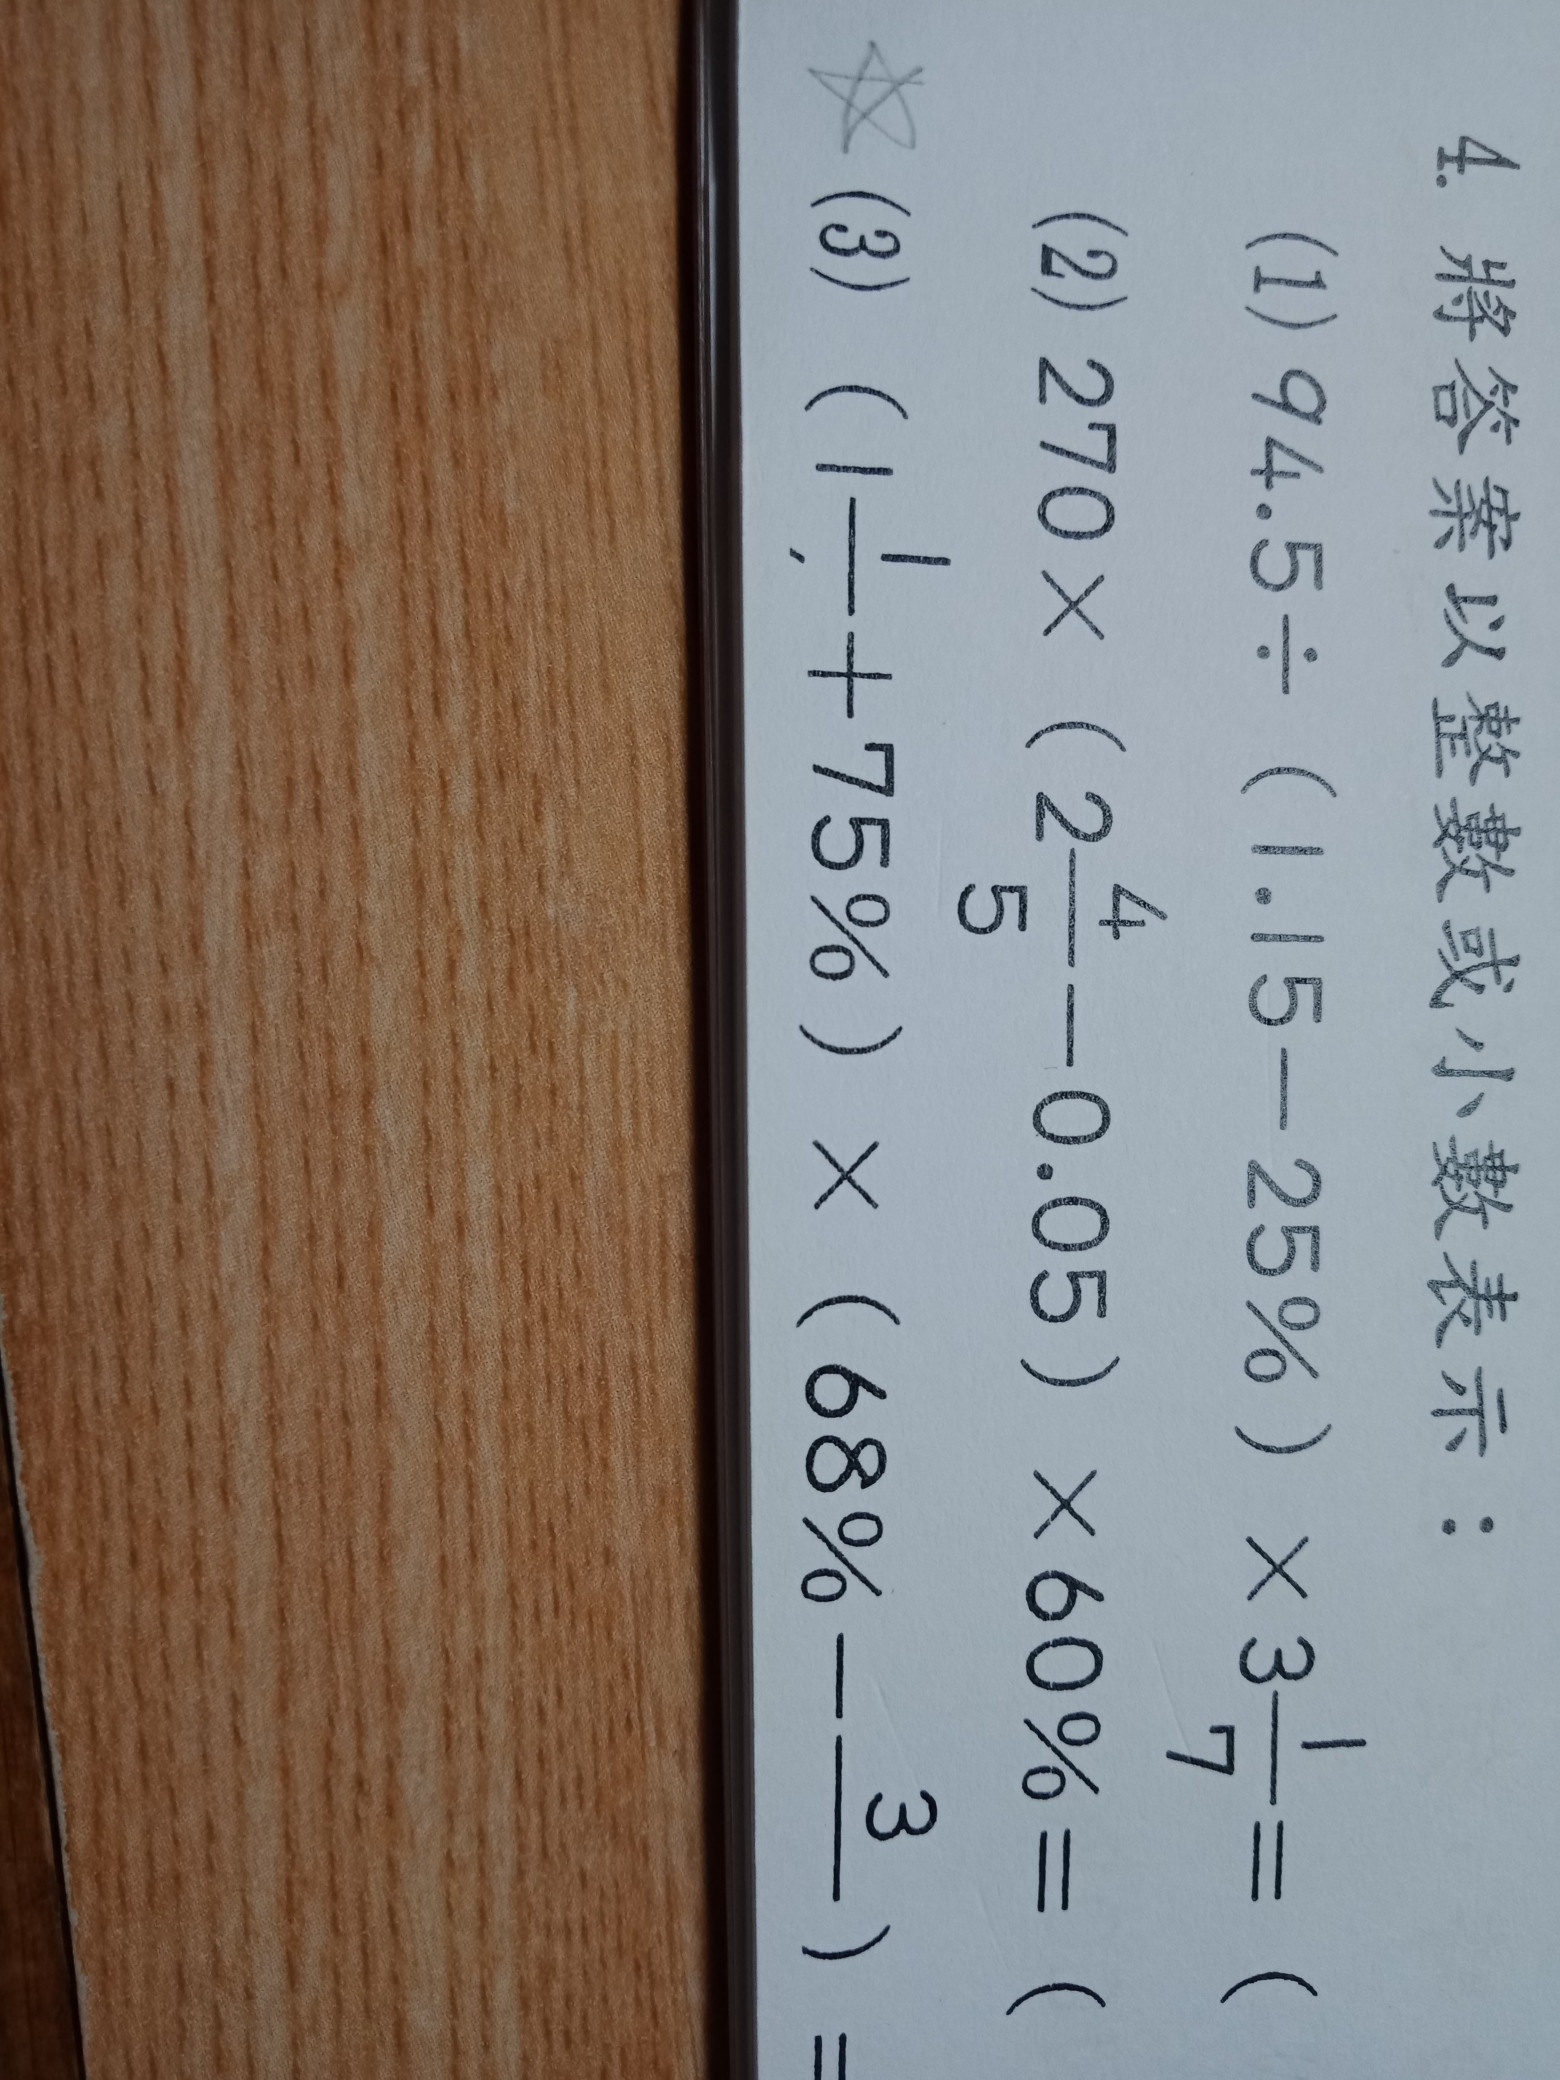 4. 將答案以整數或小數表示：
(1) 94.5÷(1.15－25%)×3 1/7＝(
(2) 270×(2 4/5－0.05)×60%＝(
(3) (1 1/ ＋75%)×(68%－3/ )＝